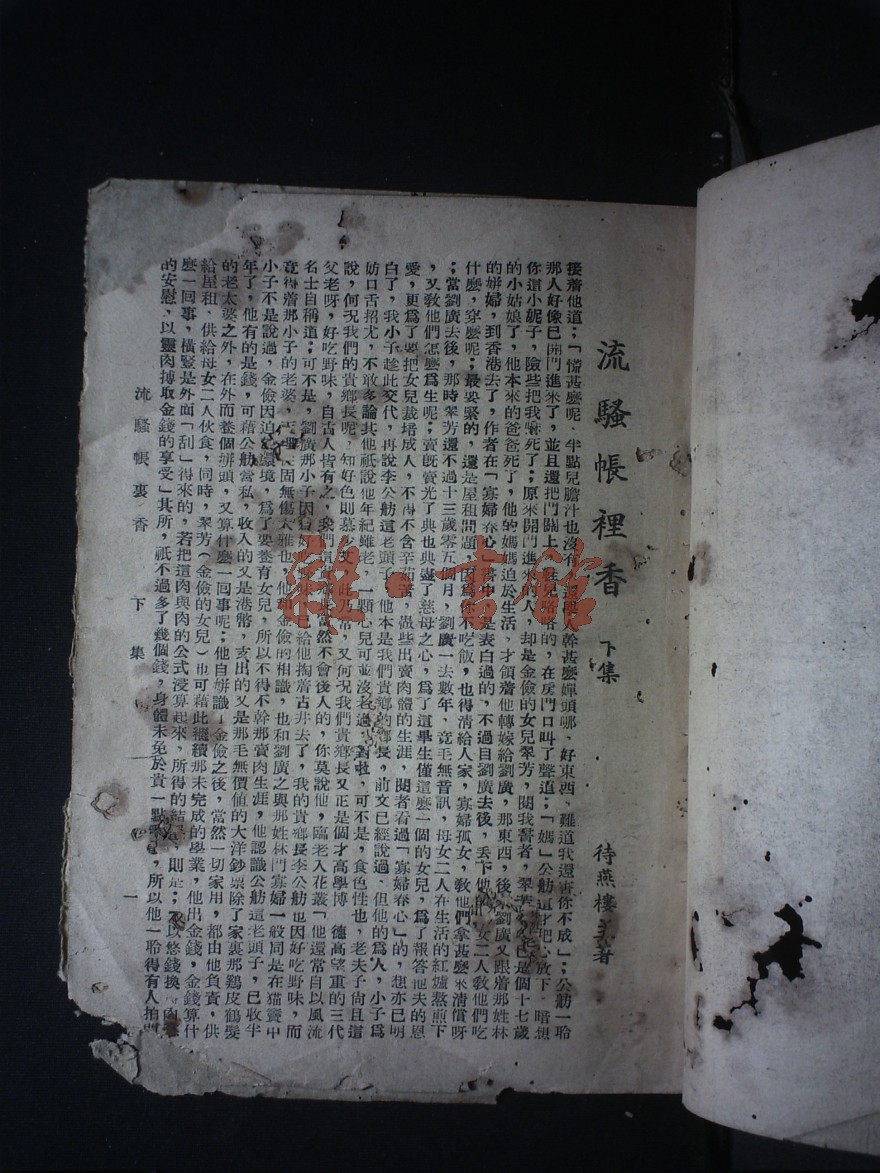 流騷帳裡香
下集
待燕樓主著
接着他道；「慌甚麼呢、半點兒膽汁也沒有、還學人幹甚麼嬋頭哪、好東西、難道我還害你不成」；公舫一聆
那人好像已開門進來了，並且還把門關上，姓兒洛洛的，在房門口叫了聲道；「媽」公舫這才把心放下、暗想
你這小妮子，險些把我嚇死了；原來開門進來的人，却是金儉的女兒翠芳，閱我書者，翠芳今已是個十七歲
的小姑娘了，他本來的爸爸死了，他的媽媽迫於生活，才領着他轉嫁給劉廣，那東西，後來劉廣又跟着那姓林
的姘婦，到香港去了，作者在「寡婦春心」書中，是表白過的，不過目劉廣去後，丟下他的母女二人教他們吃
什麼，穿麼呢；最要緊的，還是屋租問題，因為你不吃飯，也得清給人家，寡婦孤女，教他們拿甚麼來清償呀
；當劉廣去後，那時翠芳還不過十三歲零五個月，劉廣一去數年，竟毛無音訊，母女二人在生活的紅爐熬煎下
，又敎他們怎麼為生呢；賣旣賣光了典也典盡了慈母之心，為了這畢生僅這麼一個的女兒，為了報答他夫的恩
愛，更為了要把女兒裁培成人，不得不含辛茹苦，盡些出賣肉體的生涯，閱者看過「寡婦春心」的，想亦已明
白了，我小子趁此交代，再說李公舫這老頭子，他本是我們貴鄉的鄉長，前文已經說過、但他的為人，小子為
妨口舌招尤，不敢多論其他祇說他年紀雖老，一顆心兒可並沒老過，對啦，可不是，食色性也，老夫子尙且道
說，何況我們的貴鄉長呢，知好色則慕少艾，此乃常，又何況我們貴鄉長又正是個才高學博、德高望重的三代
父老呀，好吃野味，自古人皆有之，我們這鄉長，當然不會後人的，你莫說他，臨老入花叢「他還常自以風流
名士自稱道；可不是，劉廣那小子因為好吃野味，已給他掏着古井去了，我的貴鄉長李公舫也因好吃野味，而
竟得着那小子的老婆，固無傷大雅也，他和金儉的相識，也和劉廣之與那姓林鬥寡婦一般同是在猫聲中
小子不是說過，金儉因迫於環境，為了要養育女兒，所以不得不幹那賣肉生涯，他認識公舫這老頭子，已收半
年了，他有的是錢，可藉公舫營私，收入的又是港幣，支出的又是那毛無價値的大洋鈔票除了家裏那鷄皮鶴髮
的老太婆之外，在外而養個姘頭，又算什麼一回事呢；他自姘識了金儉之後，當然一切家用，都由他負責，供
給屋租、供給母女二人伙食，同時，翠芳（金儉的女兒）也可藉此繼續那未完成的學業，他出金錢，金錢算什
麼一回事，橫豎是外面「刮」得來的，若把這肉與肉的公式浸算起來，所得的結果則是；以悠錢換肉
的安慰、以靈肉搏取金錢的享受」其所，祇不過多了幾個錢，身體未免於貴一點，所以他一聆得有人拍
流騷帳裏香　下集　一
雜·書館